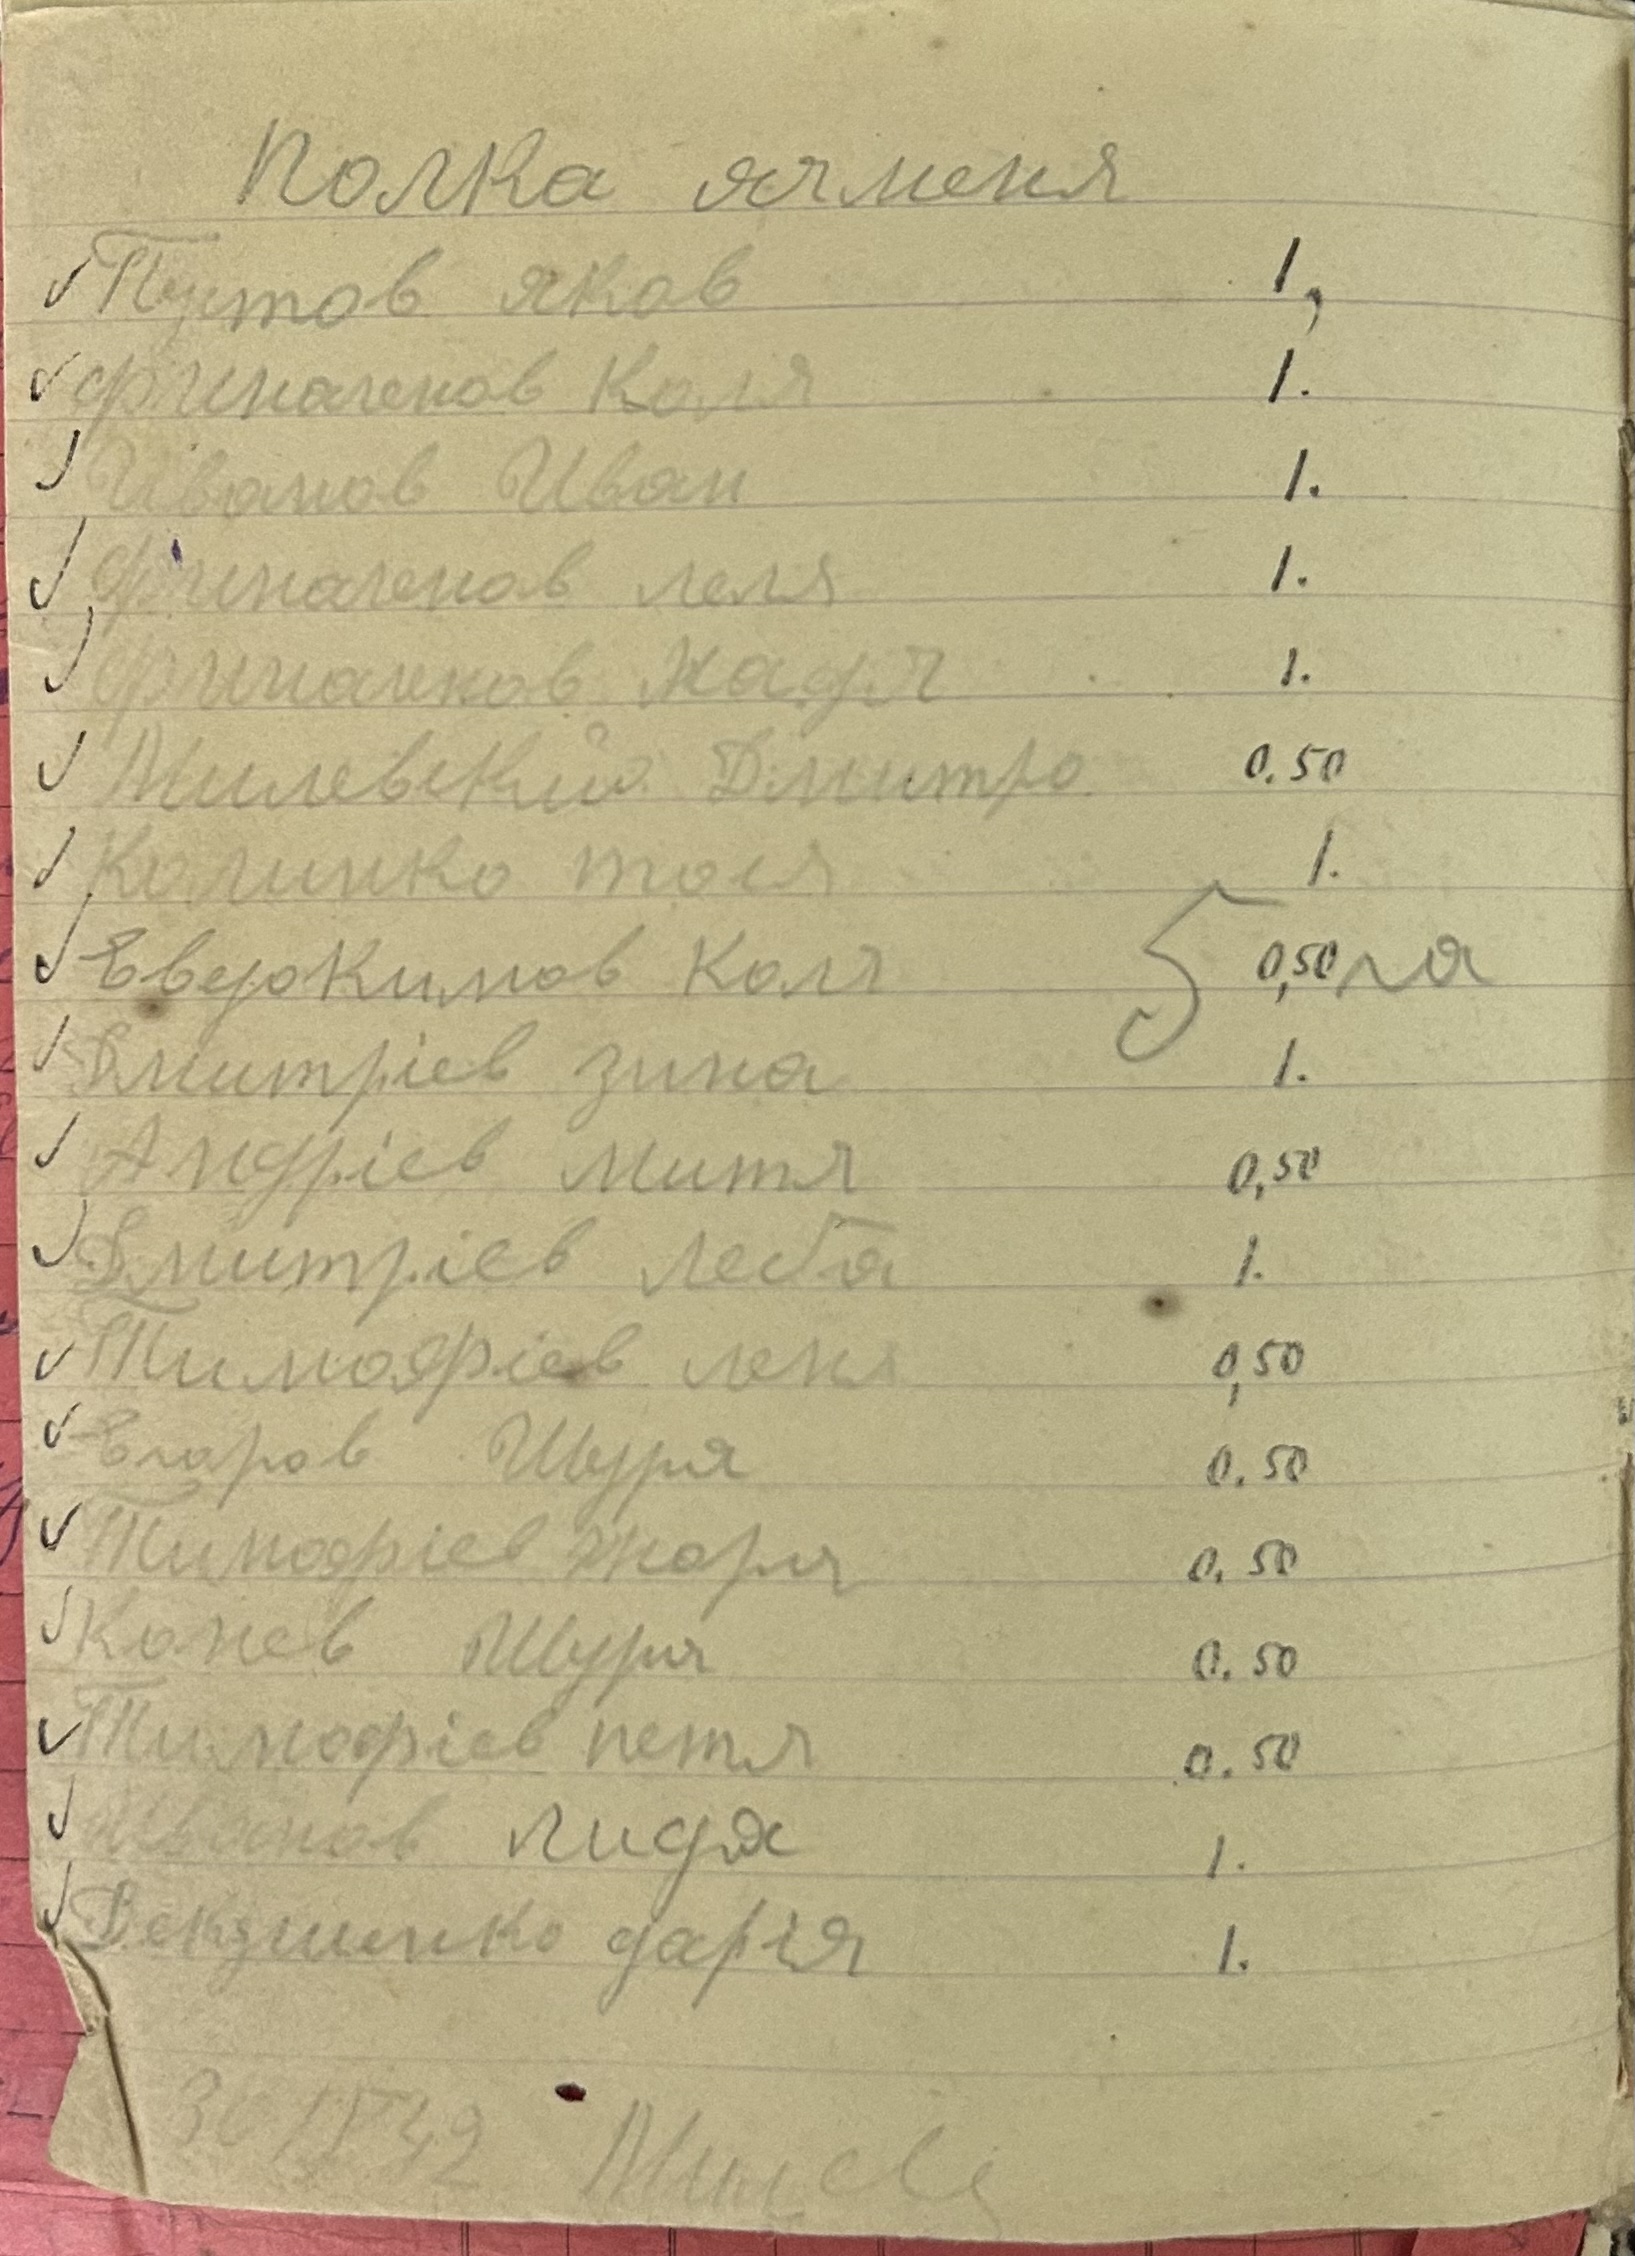 Полка ячменя
Пустов яков 1,
Финагенов Коля 1.
Иванов Иван 1.
Финагенов леля 1.
Финагенов Надя 1.
Милевский Дмитро 0.50
Калинко тося 1.
Евдокимов Коля 0,50
5 га
Дмитріев зина 1.
Андріев митя 0,50
Дмитріев леба 1.
Тимофіев леня 0,50
Егаров Шуря 0.50
Тимофіев жоря 0.50
Конев Шуря 0.50
Тимофіев петя 0.50
Иванов лидя 1.
дарія 1.
42